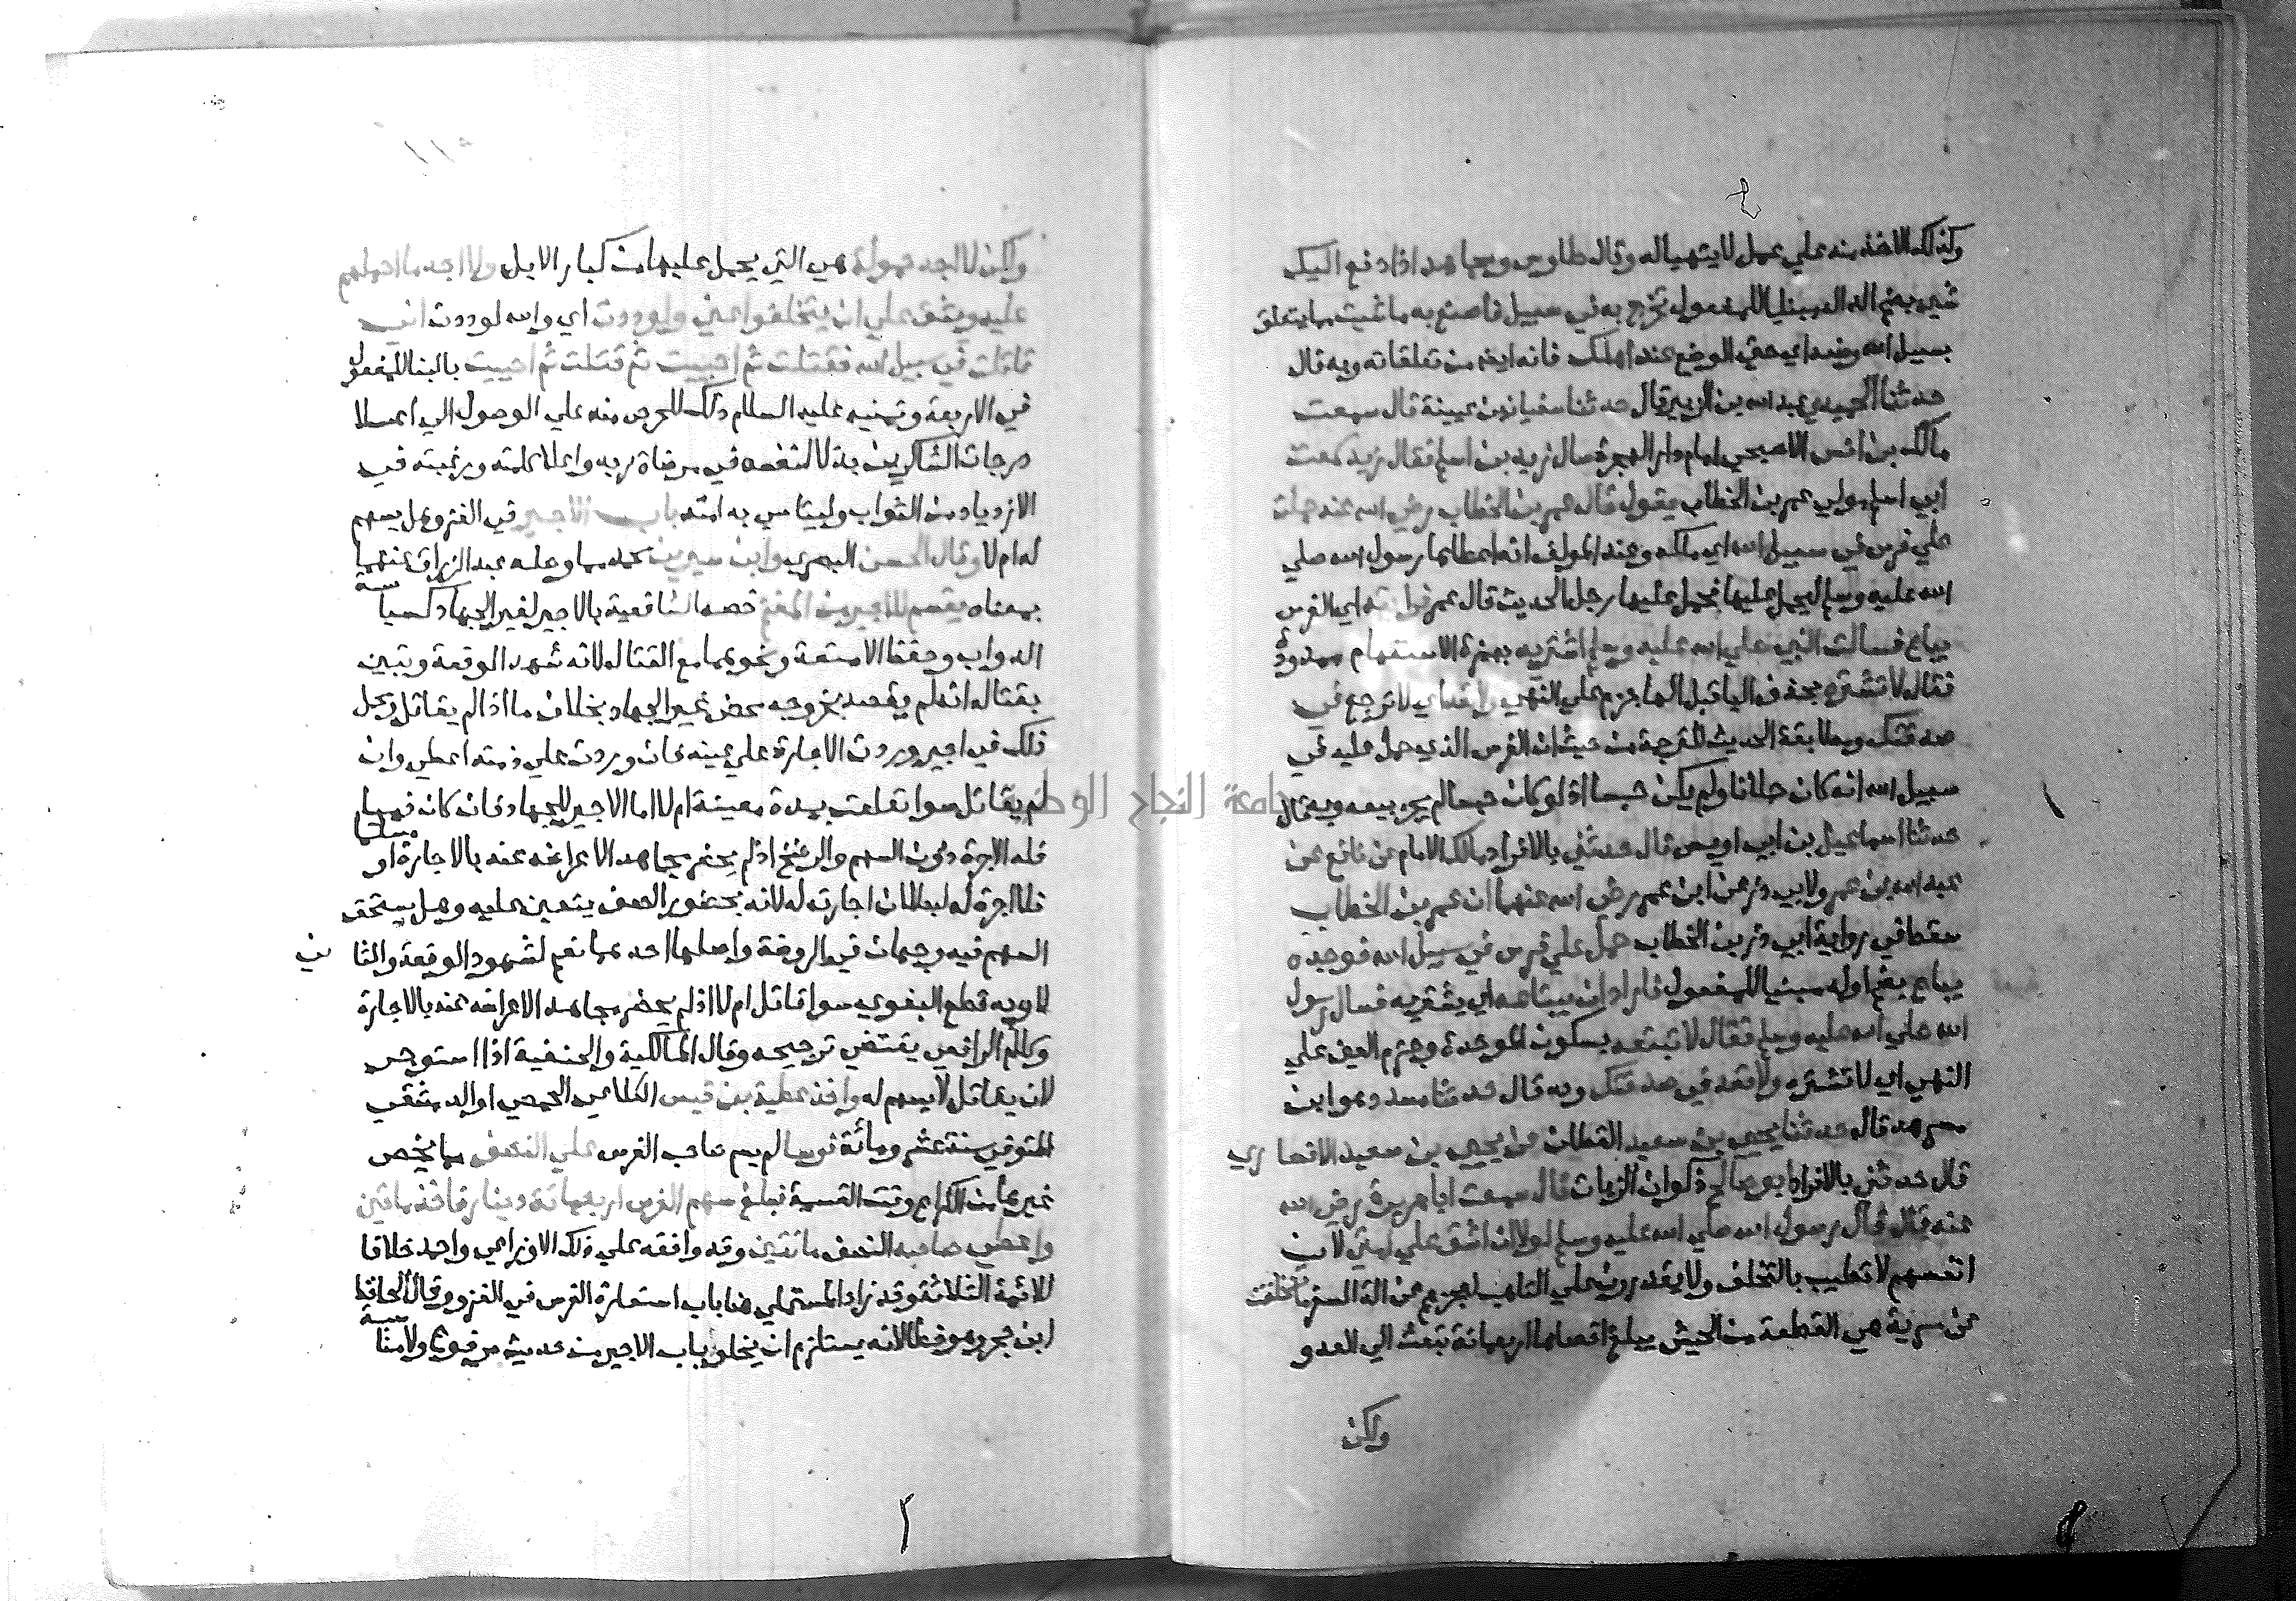 وكذلك الاخذ منه علي عمل لا يتهيا له وقال طاوس ومجاهد اذا دفع اليك
شي بضم الدال مبنيا للمفعول تخرج به في سبيل فاصنع به ما شيت مما يتعلق
بسبيل الله وضعه اي حتي الوضع عند اهلك فانه ايضا من تعلقاته وبه قال
حدثنا الحميدي عبد الله بن الزبير قال حدثنا سفيان بن عيينة قال سمعت
مالك بن انس الاصبحي امام دار الهجرة سال زيد بن اسلم فقال زيد سمعت
ابي اسلم مولي عمر بن الخطاب يقول قال عمر بن الخطاب رضي الله عنه حملت
علي فرس في سبيل الله اي ملكه وعند المولف انه اعطاها رسول الله صلي
الله عليه وسلم ليحمل عليها فحمل عليها رجل الحديث قال عمر اي الفرس
يباع فسالت النبي صلي الله عليه وسلم اشتريه بهمزة الاستفهام ممدودة
فقال لا تشتره بحذف اليا قبل الها جزم علي النهي ولا تعد اي لا ترجع في
صدقتك ومطابقة الحديث للترجمة من حيث ان الفرس الذي حمل عليه في
سبيل الله انه كان حملانا ولم يكن حبسا اذ لو كان حبسا لم يجز بيعه وبه قال
حدثنا اسماعيل بن ابي اويس قال حدثني بالافراد مالك الامام عن نافع عن
عبد الله بن عمر ولابي ذر عن ابن عمر رضي الله عنهما ان عمر بن الخطاب
سقط في رواية ابي ذر بن الخطاب حمل علي فرس في سبيل الله فوجده
يباع بضم اوله مبنيا للمفعول فاراد ان يبتاعه اي يشتريه فسال رسول
الله صلي الله عليه وسلم فقال لا تبتعه بسكون الموحدة وجزم العين علي
النهي اي لا تشتره ولا تعد في صدقتك وبه قال حدثنا مسدد وهو ابن
مسرهد قال حدثنا يحيي بن سعيد القطان عن يحيي بن سعيد الانصاري
قال حدثني بالافراد ابو صالح ذكوان الزيات قال سمعت ابا هريرة رضي الله
عنه قال قال رسول الله صلي الله عليه وسلم لولا ان اشق علي امتي لان
انفسهم لا تطيب بالتخلف ولا يقدرون علي التاهب لعجزهم عن الة السفر ما تخلفت
عن سرية هي القطعة من الجيش يبلغ اقصاها اربعمائة تبعث الي العدو
ولكن
ولكن لا اجد حمولة هي التي يحمل عليها من كبار الابل ولا اجد ما احملهم
عليه ويشق علي ان يتخلفوا عني ولوددت اي والله لوددت اني
قاتلت في سبيل الله فقتلت ثم احييت ثم قتلت ثم احييت بالبنا للمفعول
في الاربعة وتمنيه عليه السلام ذلك للحرص منه علي الوصول الي اعلا
درجات الشاكرين بذلا لنفسه في مرضاة ربه واعلا كلمته ورغبته في
الازدياد من الثواب وليتاسي به امته باب الاجير في الغزو هل يسهم
له ام لا وقال الحسن البصري وابن سيرين محمد مما وصله عبد الرزاق عنهما
بمعناه يقسم للاجير من المغنم خصه الشافعية بالاجير لغير الجهاد كسياسة
الدواب وحفظ الامتعة ونحوهما مع القتال لانه شهد الوقعة وتبين
بقتاله انه لم يقصد بخروجه محض غير الجهاد بخلاف ما اذا لم يقاتل ومحل
ذلك في اجير وردت الاجارة علي عينه فان وردت علي ذمته اعطي وان
لم يقاتل سوا تعلقت بمدة معينة ام لا اما الاجير للجهاد فان كان ذميا
فله الاجرة دون السهم والرضخ اذ لم يحضر مجاهدا لاعراضه عنه بالاجارة او مسلما
فلا اجرة له لبطلان اجارته له لانه بحضور الصف يتعين عليه وهل يستحق
السهم فيه وجهان في الروضة واصلها احدهما نعم لشهود الوقعة والثاني
لا وبه قطع البغوي سوا قاتل ام لا اذ لم يحضر مجاهدا لاعراضه عنه بالاجارة
وكلام الرافعي يقتضي ترجيحه وقال المالكية والحنفية اذا استوجر
لان يقاتل لا يسهم له واخذ عطية بن قيس الكلاعي الحمصي او الدمشقي
المتوفي سنة عشر ومائة فرسا لم يسم صاحب الفرس علي النصف مما يخص
غيرها من الكراع وقت القسمة فبلغ سهم الفرس اربعمائة دينار فاخذ ماتين
واعطي صاحبه النصف مائتين وقد وافقه علي ذلك الاوزاعي واحمد خلافا
للائمة الثلاثة وقد زاد المستملي هنا باب استعارة الفرس في الغزو وقال الحافظ
ابن حجر وهو خطا لانه يستلزم ان يخلو باب الاجير من حديث مرفوع ولا مناسبة
جامعة النجاح الوطنية